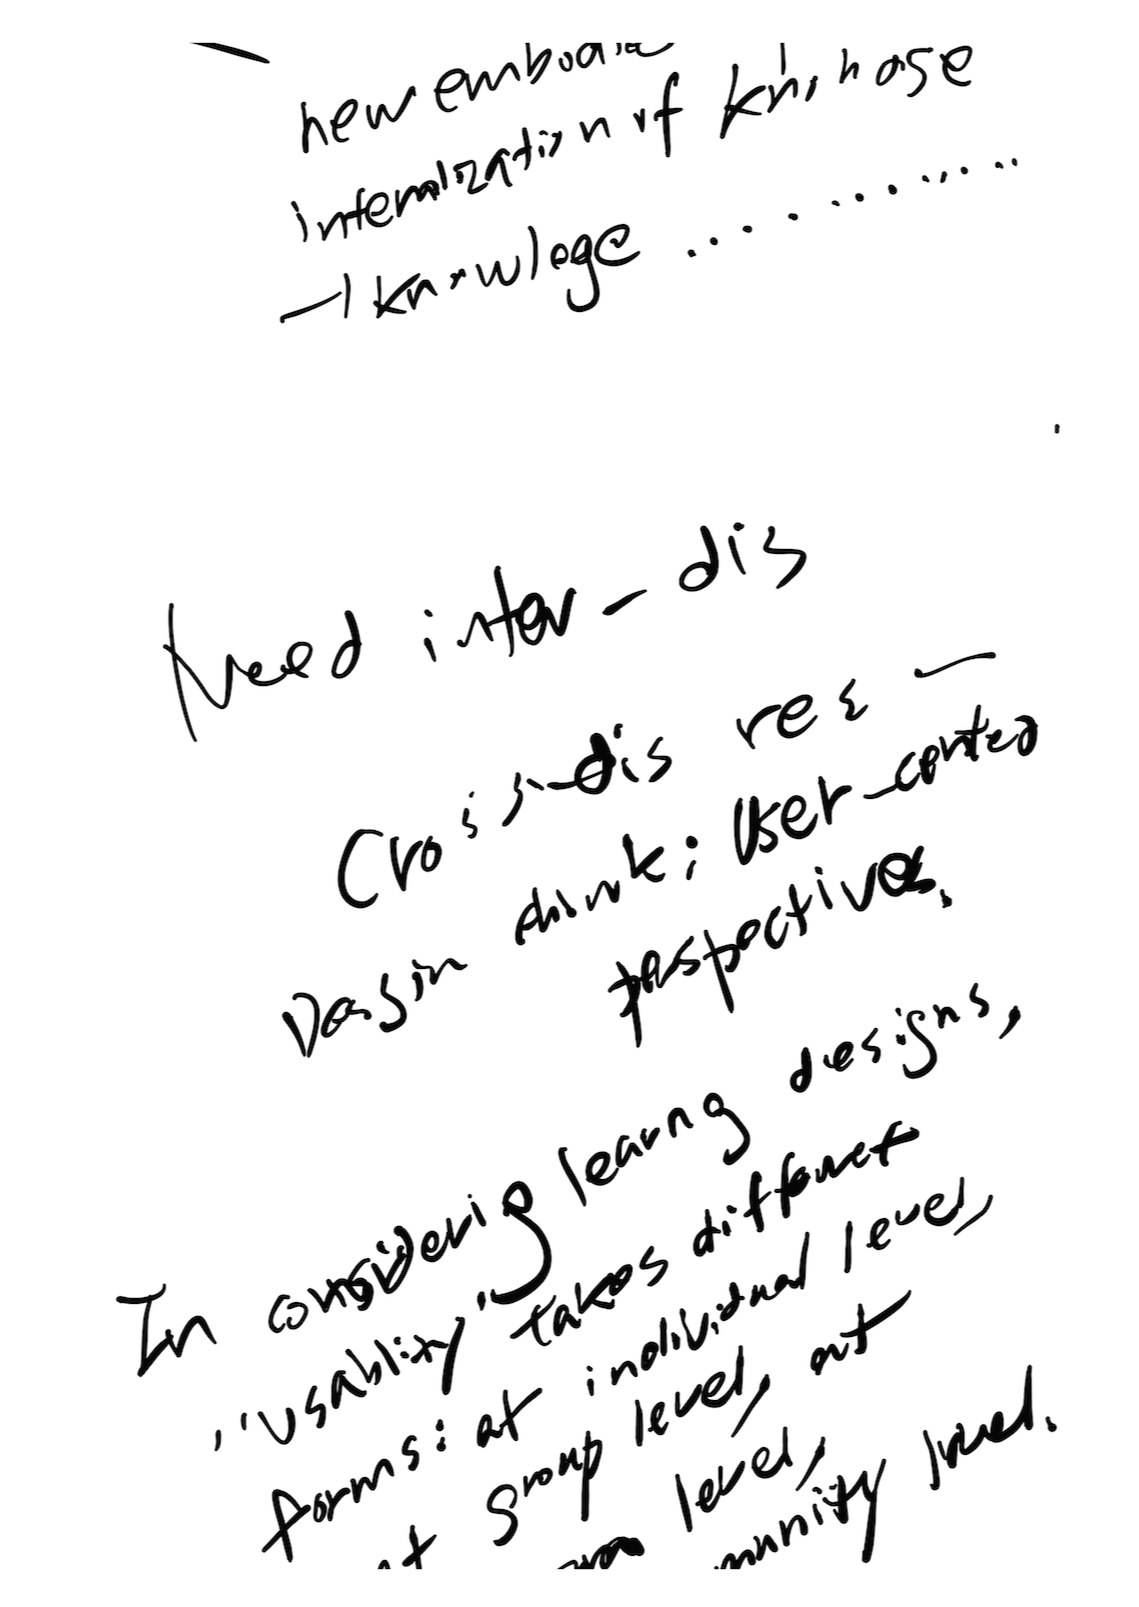 new
internalization of
knowloge ............
Need inter-dis
Cross-dis res -
Desgin think; User-conted
perspectives.
In considerig learng designs,
"usablity" takes diffent
forms: at individual level,
at group level, at
level,
munity level.